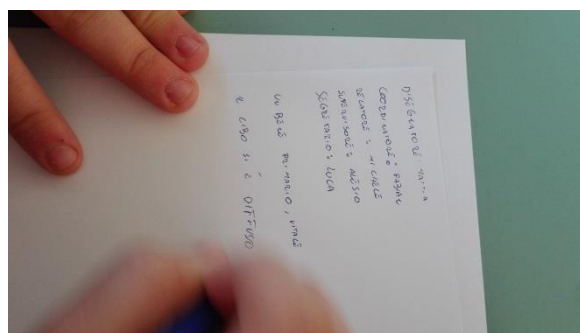 DISEGNATORE:
COORDINATORE:
RELATORE: MICHELE
SUPERVISORE: ALESIO
SEGRETARIO: LUCA
UN BENE PRIMARIO, VITALE
IL CIBO SI È DIFFUSO